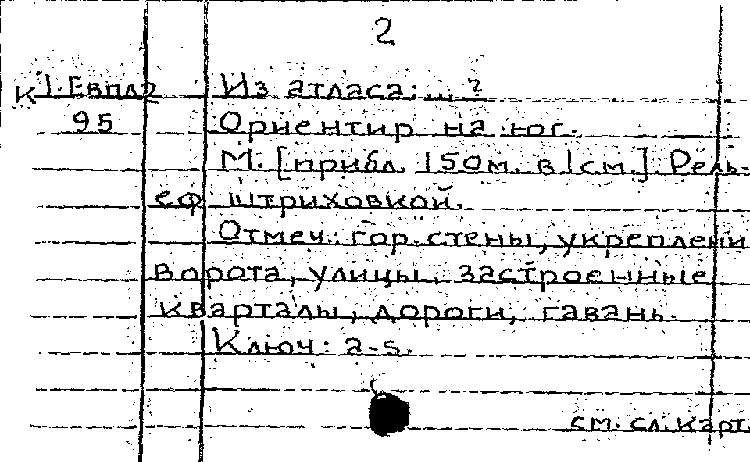 2
К 1. Евпл2 Из атласа: ... ?
95 Ориентир на юг.
М. [прибл. 150м. в 1см.] Рель-
еф штриховкой.
Отмеч: гор. стены, укреплени
ворота, улицы, застроенные
кварталы, дороги, гавань.
Ключ: a-s.
см. сл. карт.